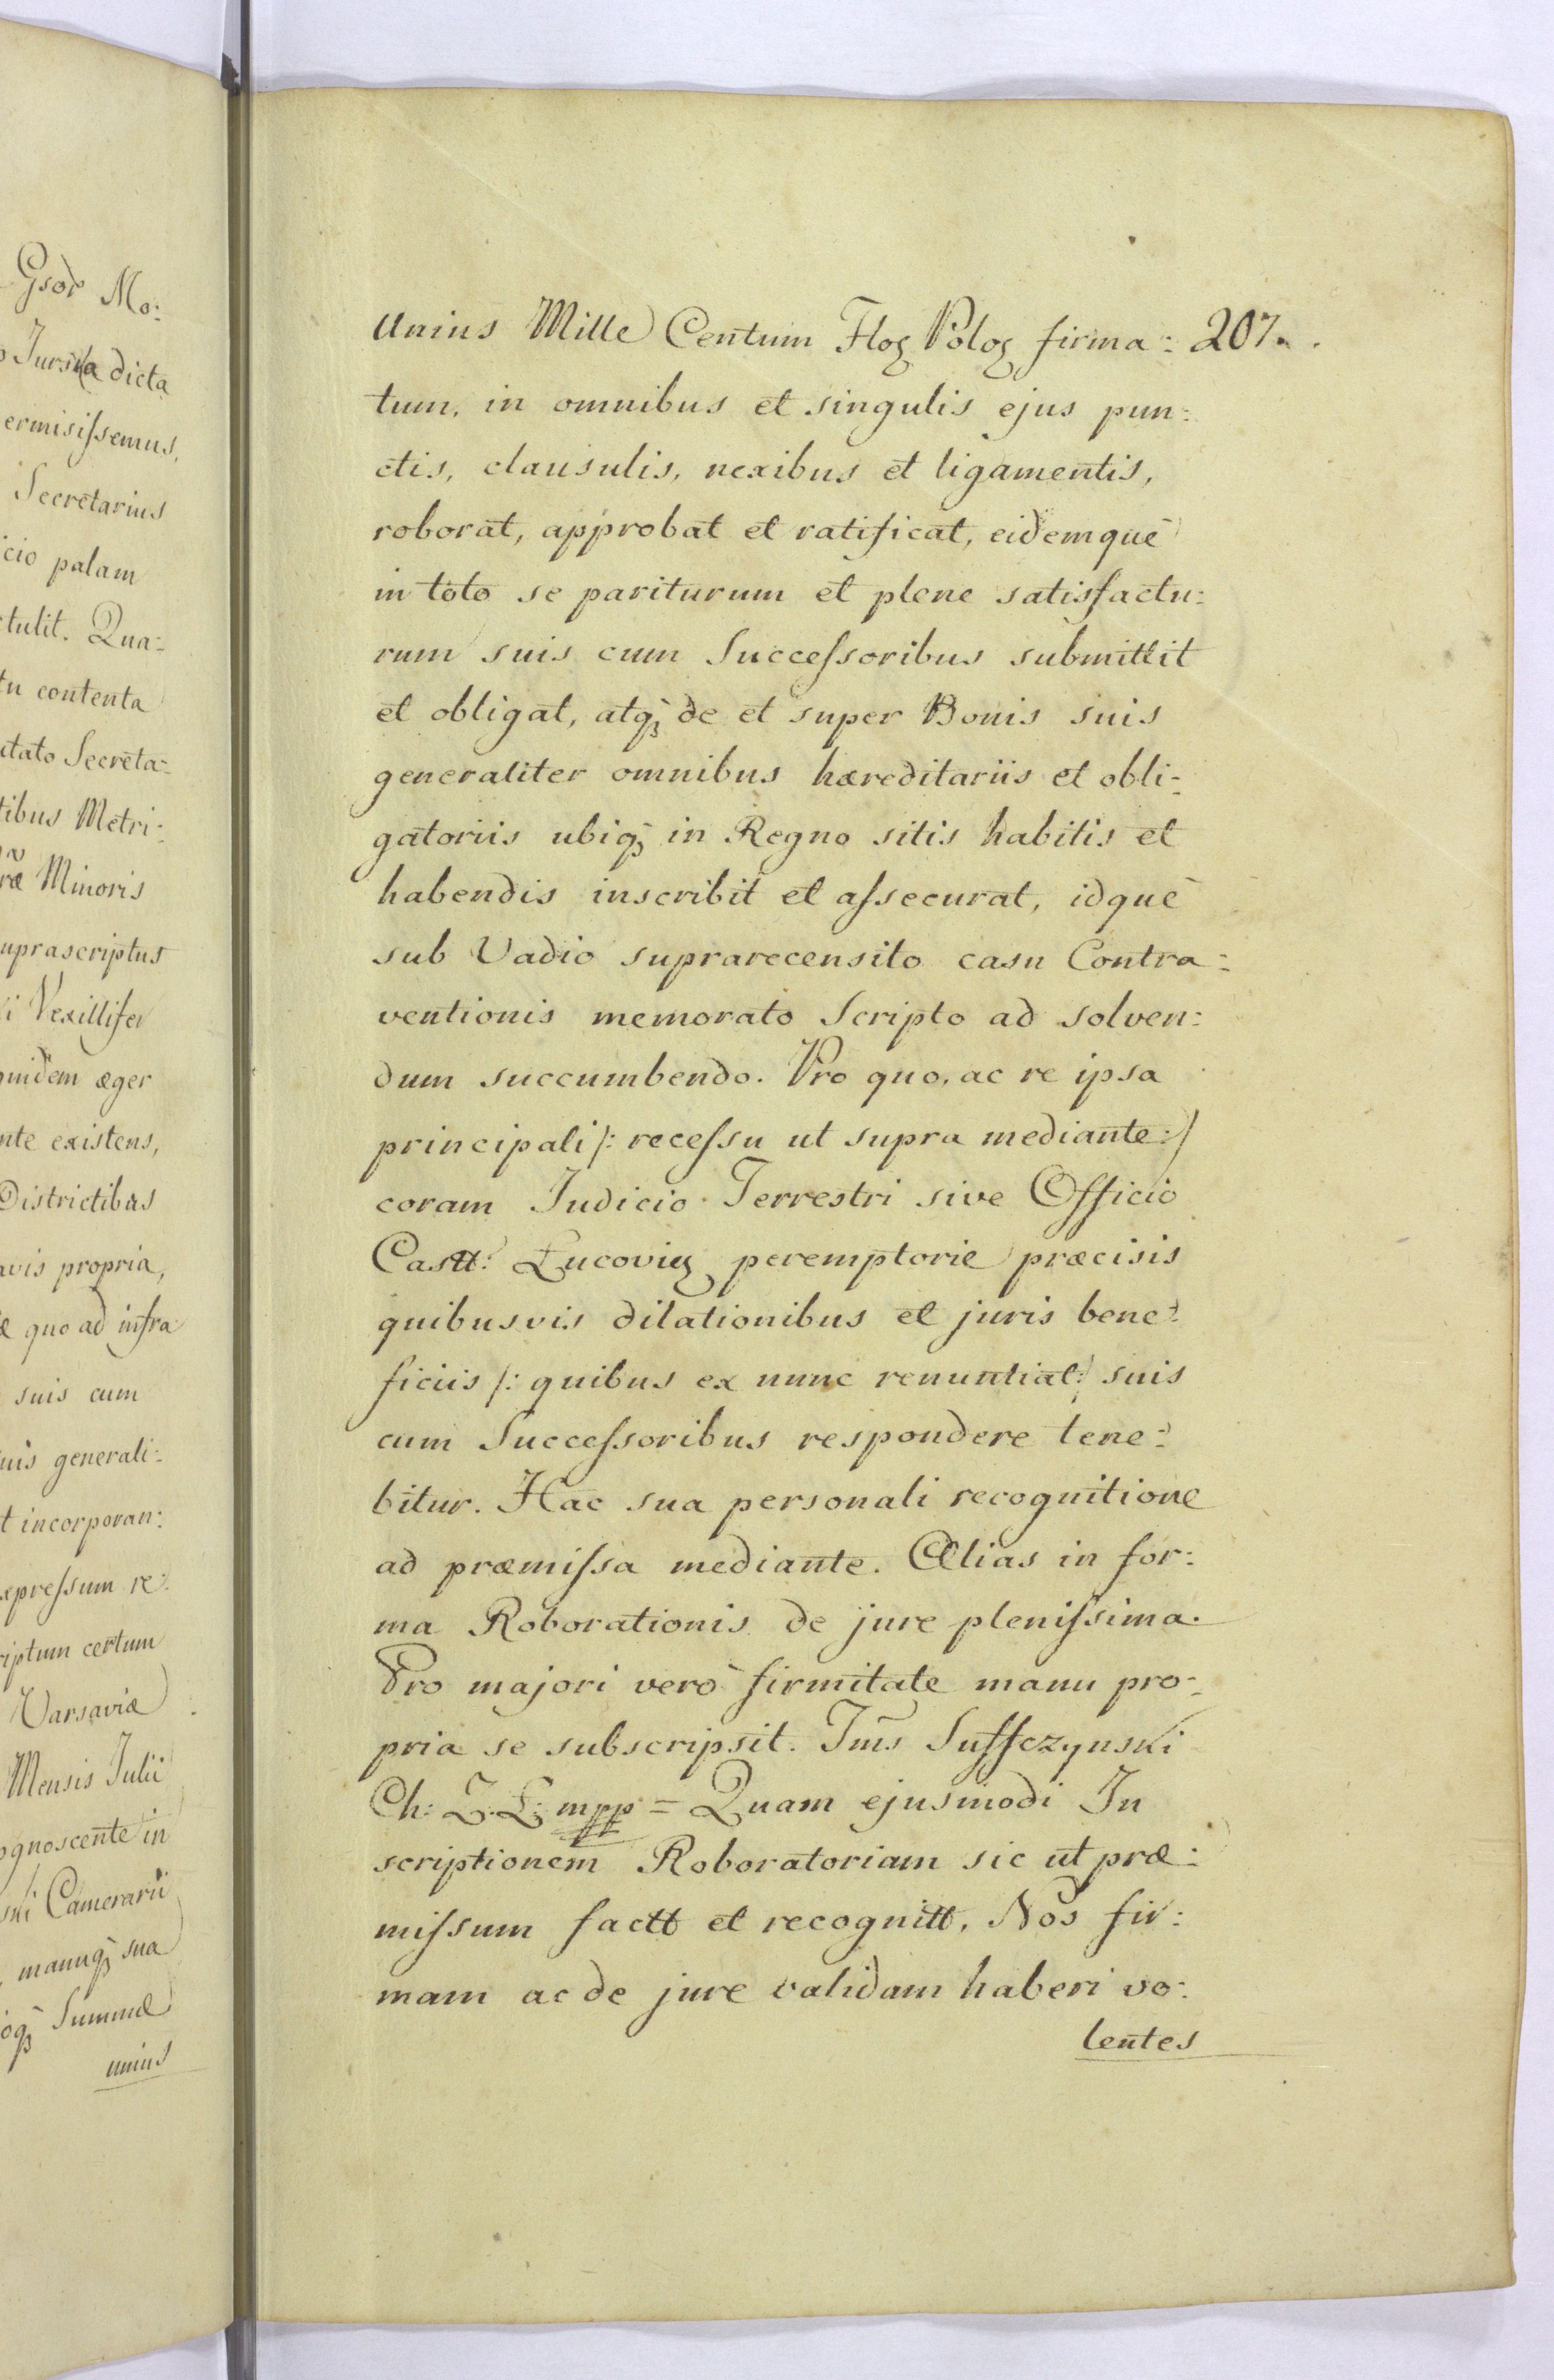 Gsdr Mo:
Jursna dicta
ermisiſsemus,
Secretarius
icio palam
tulit. Qua:
tu contenta
tato Secreta:
tibus Metri:
ræ Minoris
uprascriptus
i Vexillifer
quidem æger
nte existens,
Districtibus
avis propria,
æ quo ad infra
suis cum
uis generali:
t incorporan:
xpreſsum re:
riptum certum
Varsaviæ
Mensis Julii
ognoscente in
ski Camerarii
manuqꝫ sua
oqꝫ Summæ
unius
Unius Mille Centum Floꝝ Poloꝝ firma: 207.
tum, in omnibus et singulis ejus pun:
ctis, clausulis, nexibus et ligamentis,
roborat, approbat et ratificat, eidemque
in toto se pariturum et plene satisfactu:
rum suis cum Succeſsoribus submittit
et obligat, atqꝫ de et super Bonis suis
generaliter omnibus hæreditariis et obli:
gatoriis ubiqꝫ in Regno sitis habitis et
habendis inscribit et aſsecurat, idque
sub Vadio suprarecensito casu Contra:
ventionis memorato Scripto ad solven:
dum succumbendo. Pro quo, ac re ipsa
principali /: receſsu ut supra mediante :/
coram Judicio Terrestri sive Officio
Castt: Łucovieꝝ peremptorie præcisis
quibusvis dilationibus et juris bene:
ficiis /: quibus ex nunc renuntiat :/ suis
cum Succeſsoribus respondere tene:
bitur. Hac sua personali recognitione
ad præmiſsa mediante. Alias in for:
ma Roborationis de jure pleniſsima.
Pro majori verò firmitate manu pro:
pria se subscripsit. Jms Suffczynski
Ch: Z: Ł: mpp = Quam ejusmodi In
scriptionem Roboratoriam sic ut præ:
miſsum factt et recognitt, Nos fir:
mam ac de jure validam haberi vo:
lentes